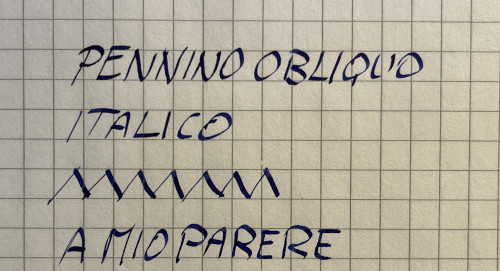 PENNINO OBLIQUO
ITALICO
A MIO PARERE